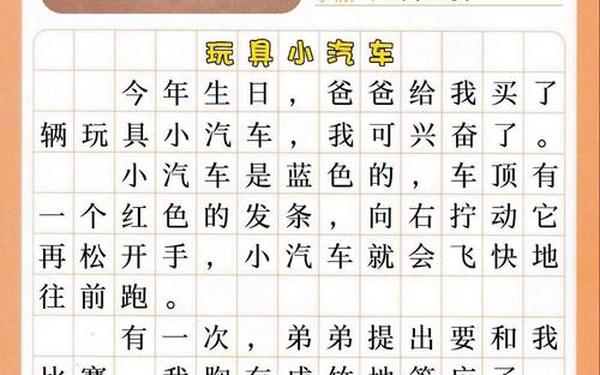 玩具小汽车
今年生日，爸爸给我买了
辆玩具小汽车，我可兴奋了。
小汽车是蓝色的，车顶有
一个红色的发条，向右拧动它
再松开手，小汽车就会飞快地
往前跑。
有一次，弟弟提出要和我
比赛，我胸有成竹地答应了